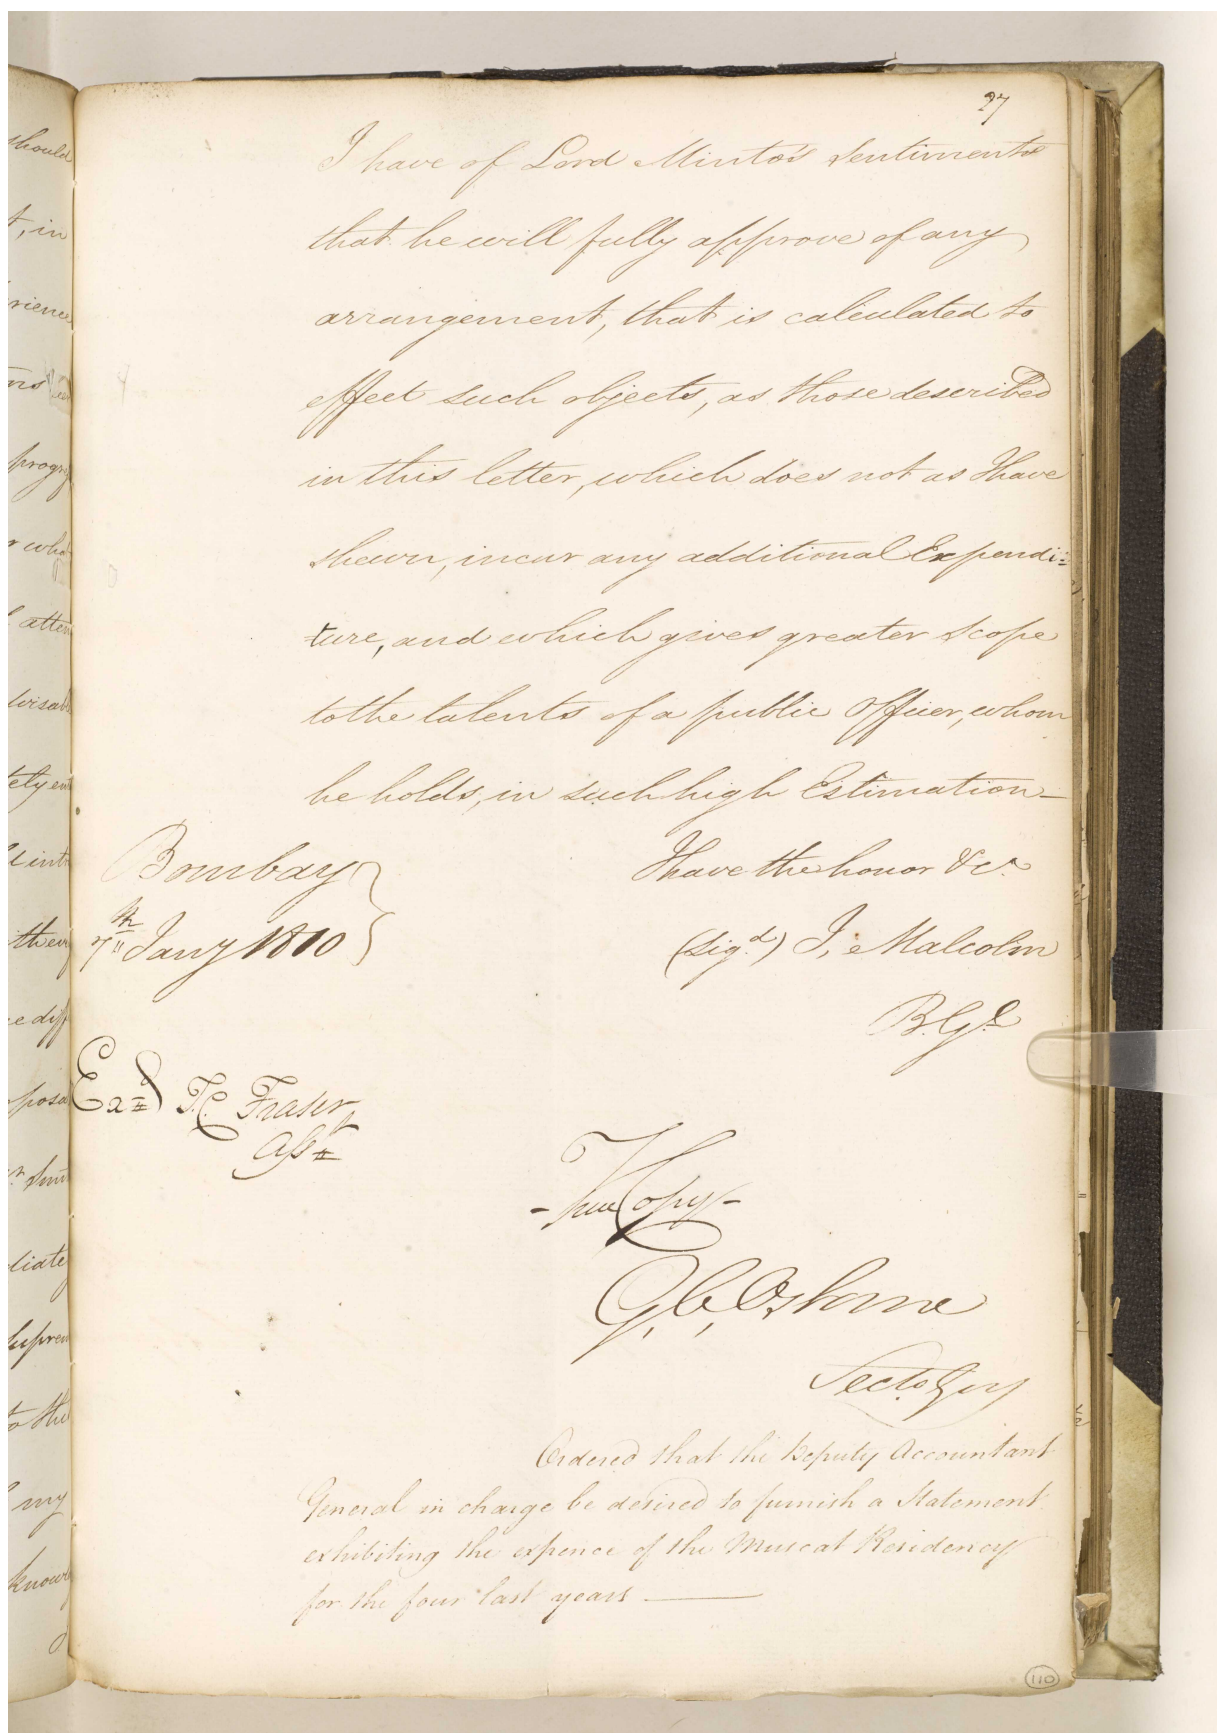 97
I have of Lord Minto's sentiments
that he will fully approve of any
arrangement, that is calculated to
effect such objects, as those described
in this letter, which does not as I have
shewn, incur any additional Expendi=
=ture, and which gives greater scope
to the talents of a public Officer, whom
he holds, in such high Estimation_
I have the honor &ca
Bombay
7th Jany 1810
(Sigd) J, Malcolm
B. Gl
Exd J.C. Fraser
Asst
- True Copy -
G, C, Osborne
Secto Govt
Ordered that the Deputy Accountant
General in charge be desired to furnish a Statement
exhibiting the expence of the Muscat Residency
for the four last years
110
should
t, in
rience
progr
r what
atten
ety
ther
e diff
posa
diate
Suprem
to the
my
know